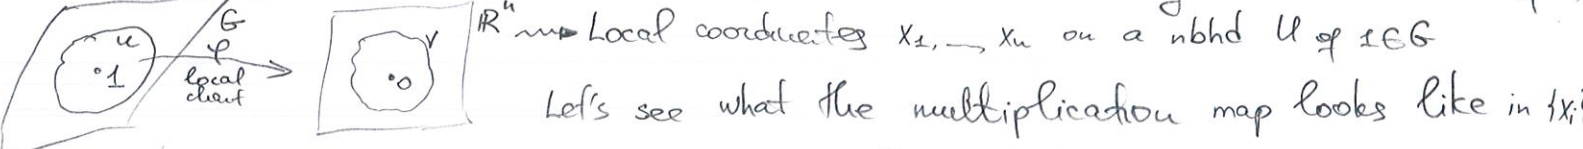 G
U
·1
φ
local
chart
V
·0
ℝⁿ ⇝ Local coordinates x₁, —, xₙ on a nbhd U of 1∈G
Let's see what the multiplication map looks like in {xᵢ